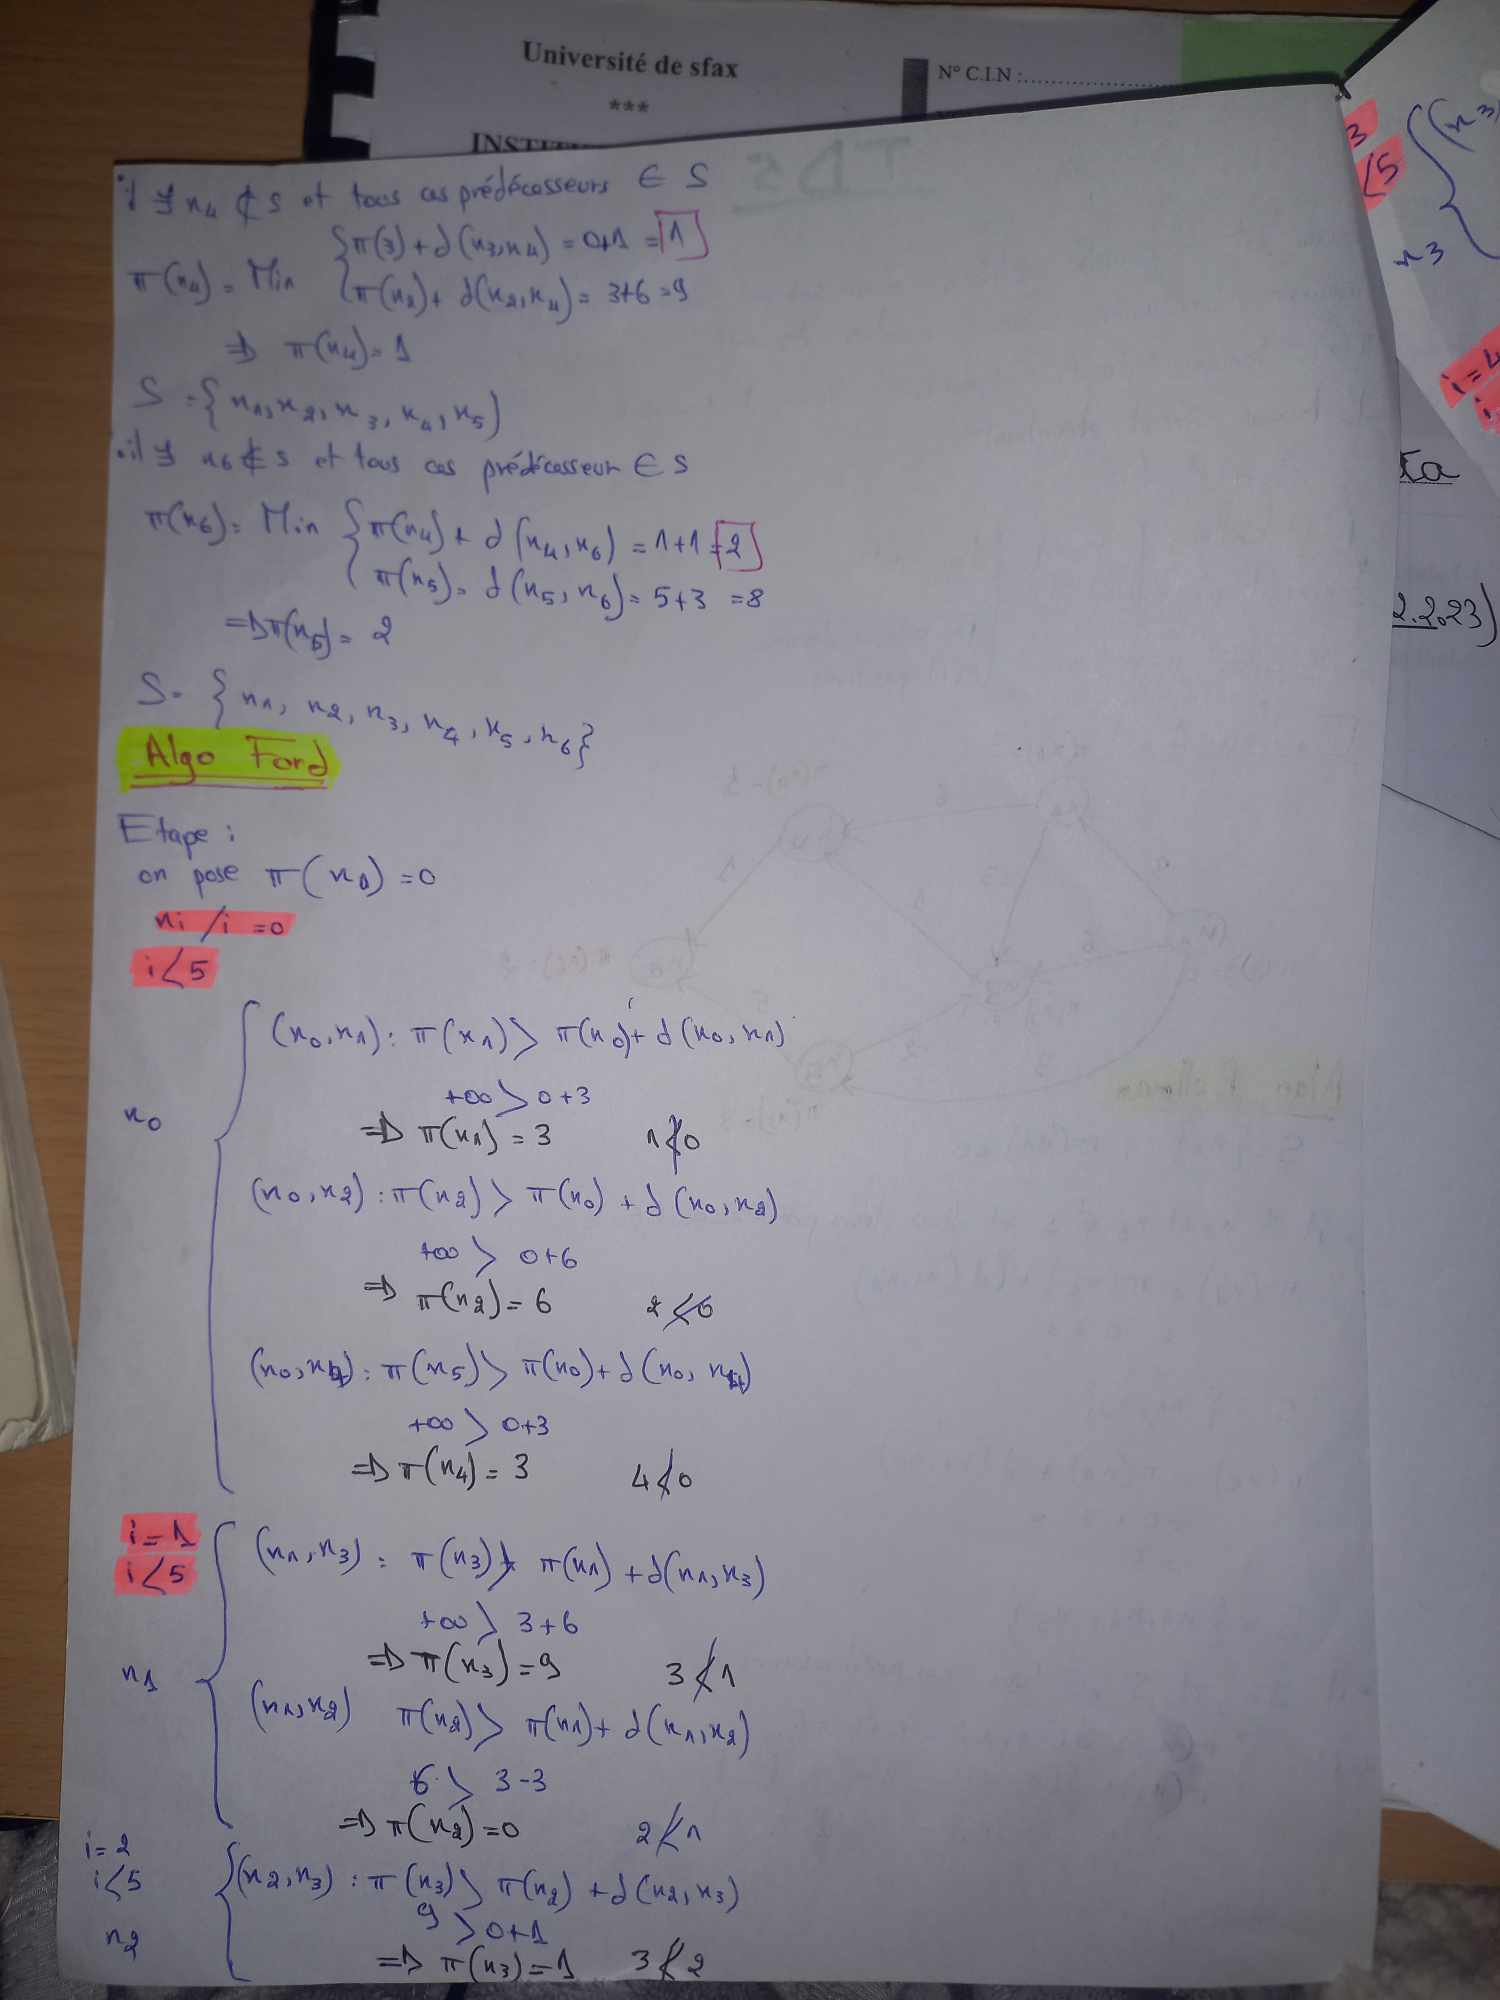 Université de sfax
***
N° C.I.N :
il ∃ x4 ∉ S et tous ces prédécesseurs ∈ S
π(x4) = Min { π(3) + d(x3,x4) = 0+1 = 1
π(x2) + d(x2,x4) = 3+6 = 9
=> π(x4) = 1
S = {x1, x2, x3, x4, x5)
.il ∃ x6 ∉ S et tous ces prédécesseur ∈ S
π(x6) = Min { π(x4) + d(x4,x6) = 1+1 = 2
π(x5) = d(x5,x6) = 5+3 = 8
=> π(x5) = 2
S = {x1, x2, x3, x4, x5, x6}
Algo Ford
Etape :
on pose π(x0) = 0
xi / i = 0
i < 5
x0
(x0,x1) : π(x1) > π(x0) + d(x0,x1)
+∞ > 0+3
=> π(x1) = 3 1 ≮ 0
(x0,x2) : π(x2) > π(x0) + d(x0,x2)
+∞ > 0+6
=> π(x2) = 6 2 ≮ 0
(x0,x4) : π(x5) > π(x0) + d(x0,x4)
+∞ > 0+3
=> π(x4) = 3 4 ≮ 0
i = 1
i < 5
x1
(x1,x3) : π(x3) > π(x1) + d(x1,x3)
+∞ > 3+6
=> π(x3) = 9 3 ≮ 1
(x1,x2) π(x2) > π(x1) + d(x1,x2)
6 > 3-3
=> π(x2) = 0 2 ≮ 1
i = 2
i < 5
x2
(x2,x3) : π(x3) > π(x2) + d(x2,x3)
9 > 0+1
=> π(x3) = 1 3 ≮ 2
3
<5
(x3
x3
i=4
ta
2.2023)